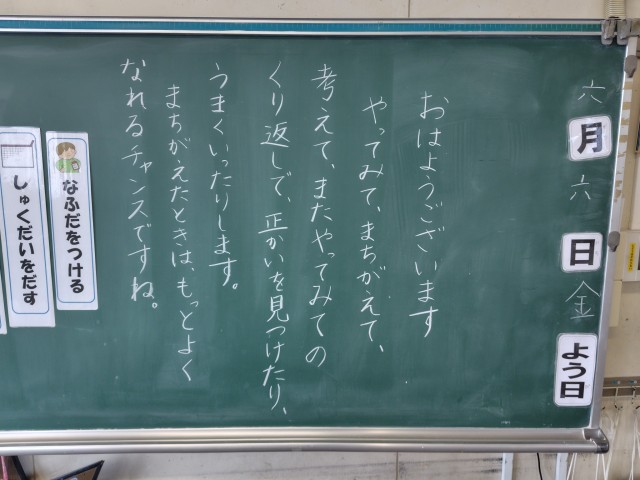 六月六日金よう日
おはようございます
やってみて、まちがえて、
考えて、またやってみての
くり返しで、正かいを見つけたり、
うまくいったりします。
まちがえたときは、もっとよく
なれるチャンスですね。
なふだをつける
しゅくだいをだす